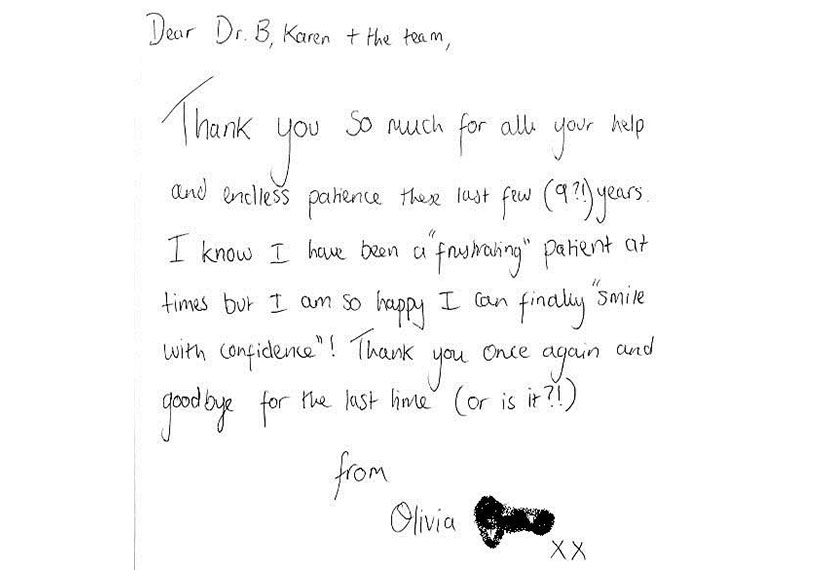 Dear Dr. B, Karen + the team,
Thank you so much for all your help
and endless patience these last few (9?!) years.
I know I have been a "frustrating" patient at
times but I am so happy I can finally "smile
with confidence"! Thank you once again and
goodbye for the last time (or is it?!)
from
Olivia
xx